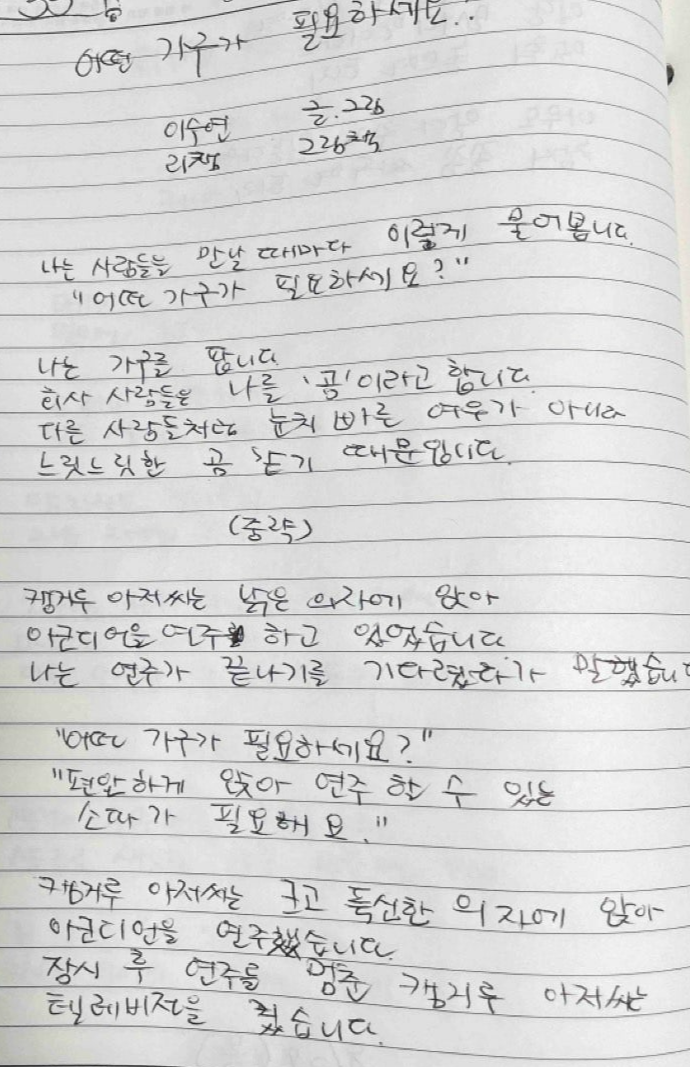 어떤 가구가 필요하세요..
이수연 글.그림
리잼 그림책
나는 사람들을 만날 때마다 이렇게 물어봅니다.
"어떤 가구가 필요하세요?"
나는 가구를 팝니다.
회사 사람들은 나를 '곰'이라고 합니다.
다른 사람들처럼 눈치 빠른 여우가 아니라
느릿느릿한 곰 같기 때문입니다.
(중략)
캥거루 아저씨는 낡은 의자에 앉아
아코디언을 연주 하고 있었습니다
나는 연주가 끝나기를 기다렸다가 말했습니다
"어떤 가구가 필요하세요?"
"편안하게 앉아 연주 할 수 있는
소파가 필요해요."
캥거루 아저씨는 크고 푹신한 의자에 앉아
아코디언을 연주했습니다.
잠시 후 연주를 멈춘 캥거루 아저씨는
텔레비전을 켰습니다.